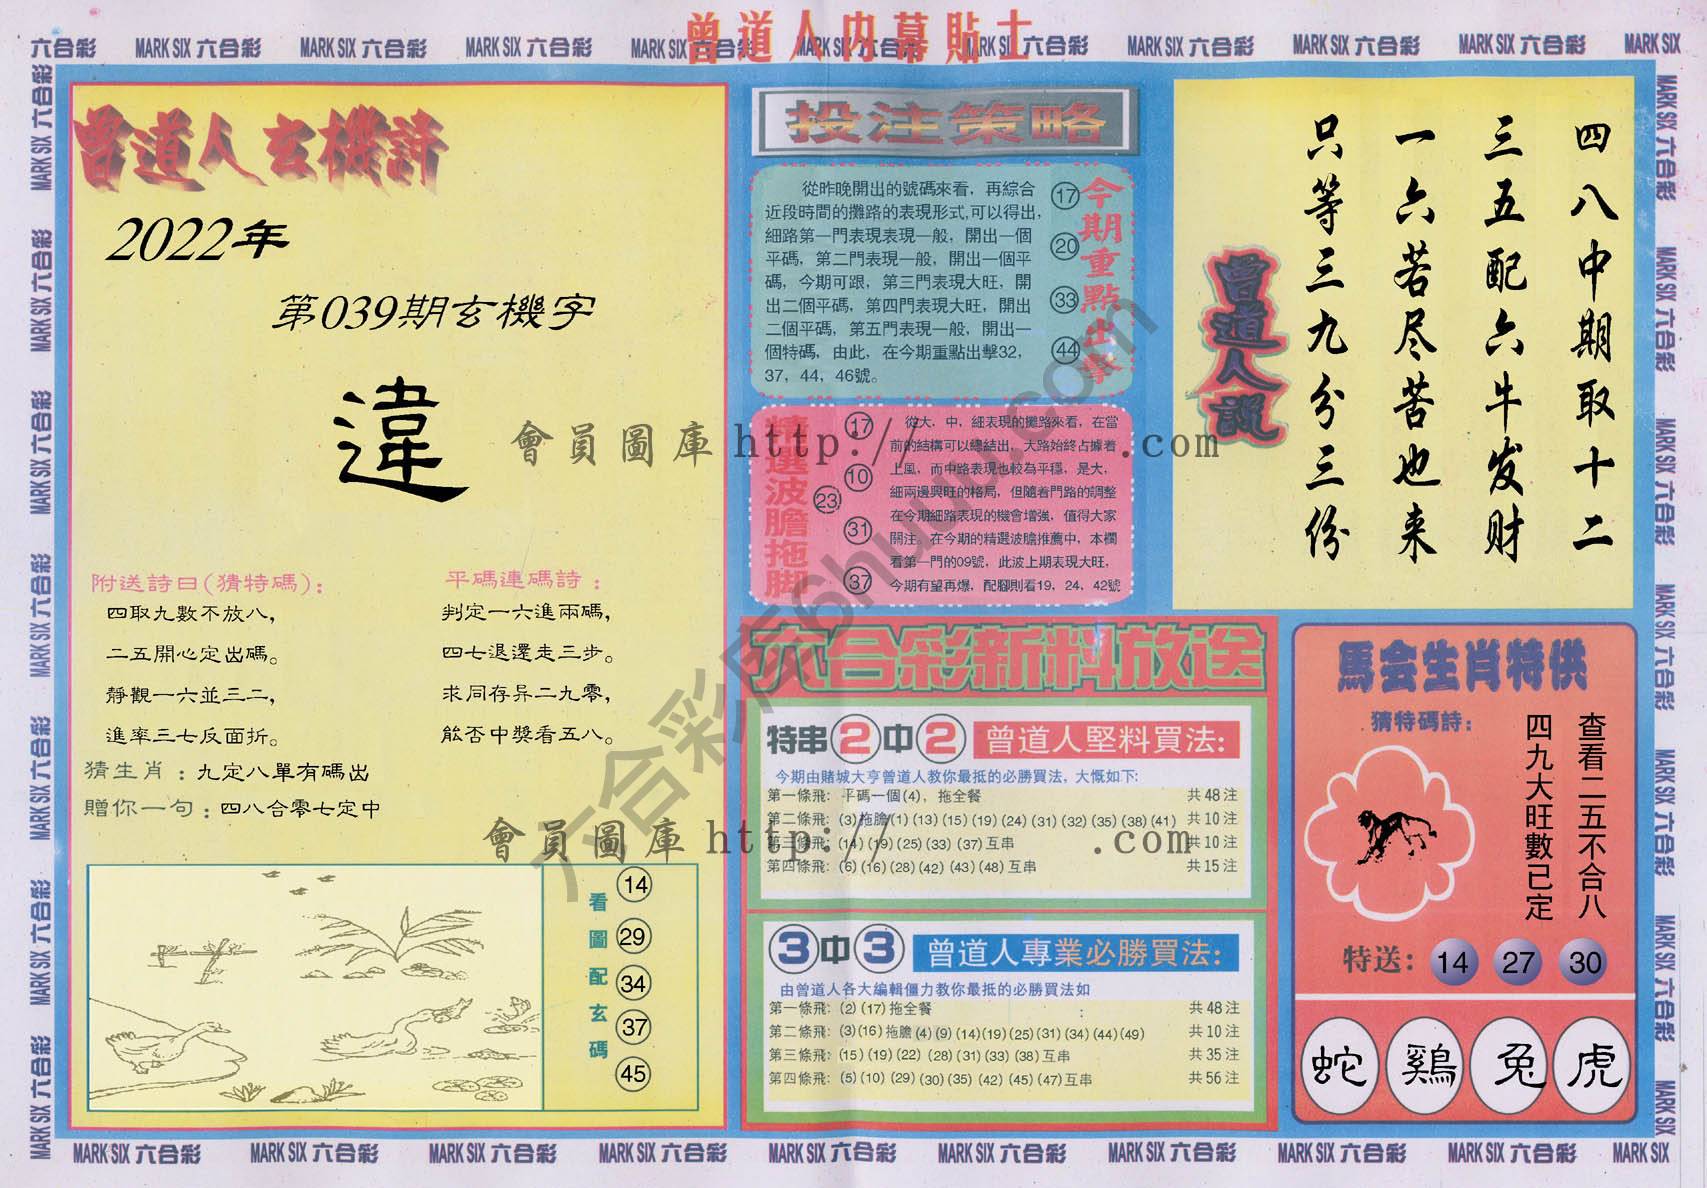 曾道人內幕貼士
六合彩 MARK SIX 六合彩 MARK SIX 六合彩 MARK SIX 六合彩 MARK SIX 六合彩 MARK SIX 六合彩 MARK SIX 六合彩 MARK SIX 六合彩 MARK SIX 六合彩 MARK SIX 六合彩 MARK SIX
曾道人玄機詩
2022年
第039期玄機字
違
附送詩曰(猜特碼):
四取九數不放八,
二五開心定出碼。
靜觀一六並三二,
進率三七反面折。
平碼連碼詩：
判定一六進兩碼,
四七退還走三步。
求同存异二九零,
能否中獎看五八。
猜生肖：九定八單有碼出
贈你一句：四八合零七定中
看圖配玄碼
14
29
34
37
45
投注策略
從昨晚開出的號碼來看，再綜合
近段時間的攤路的表現形式,可以得出,
細路第一門表現表現一般，開出一個
平碼，第二門表現一般，開出一個平
碼，今期可跟，第三門表現大旺，開
出二個平碼，第四門表現大旺，開出
二個平碼，第五門表現一般，開出一
個特碼，由此，在今期重點出擊32，
37，44，46號。
17
20
33
44
今期重點出擊
精選波膽拖脚
17
10
23
31
37
從大，中，細表現的攤路來看，在當
前的結構可以總結出，大路始終占據着
上風，而中路表現也較為平穩，是大，
細兩邊興旺的格局，但隨着門路的調整
在今期細路表現的機會增強，值得大家
關注。在今期的精選波膽推薦中，本欄
看第一門的09號，此波上期表現大旺，
今期有望再爆，配腳則看19，24，42號
四八中期取十二
三五配六牛发财
一六若尽苦也来
只等三九分三份
曾道人說
六合彩新料放送
特串2中2 曾道人堅料買法:
今期由賭城大亨曾道人教你最抵的必勝買法，大慨如下:
第一條飛: 平碼一個(4)，拖全餐 共48注
第二條飛: (3)拖膽(1)(13)(15)(19)(24)(31)(32)(35)(38)(41) 共10注
第三條飛: (14)(19)(25)(33)(37)互串 共10注
第四條飛: (6)(16)(28)(42)(43)(48)互串 共15注
3中3 曾道人專業必勝買法:
由曾道人各大編輯僵力教你最抵的必勝買法如
第一條飛: (2)(17)拖全餐 共48注
第二條飛: (3)(16)拖膽(4)(9)(14)(19)(25)(31)(34)(44)(49) 共10注
第三條飛: (15)(19)(22)(28)(31)(33)(38)互串 共35注
第四條飛: (5)(10)(29)(30)(35)(42)(45)(47)互串 共56注
馬会生肖特供
猜特碼詩:
查看二五不合八
四九大旺數已定
特送: 14 27 30
蛇 鷄 兔 虎
會員圖庫 http:// .com
會員圖庫 http:// .com
六合彩库6huuu.com
MARK SIX 六合彩 MARK SIX 六合彩 MARK SIX 六合彩 MARK SIX 六合彩 MARK SIX 六合彩 MARK SIX 六合彩 MARK SIX 六合彩 MARK SIX 六合彩 MARK SIX 六合彩 MARK SIX